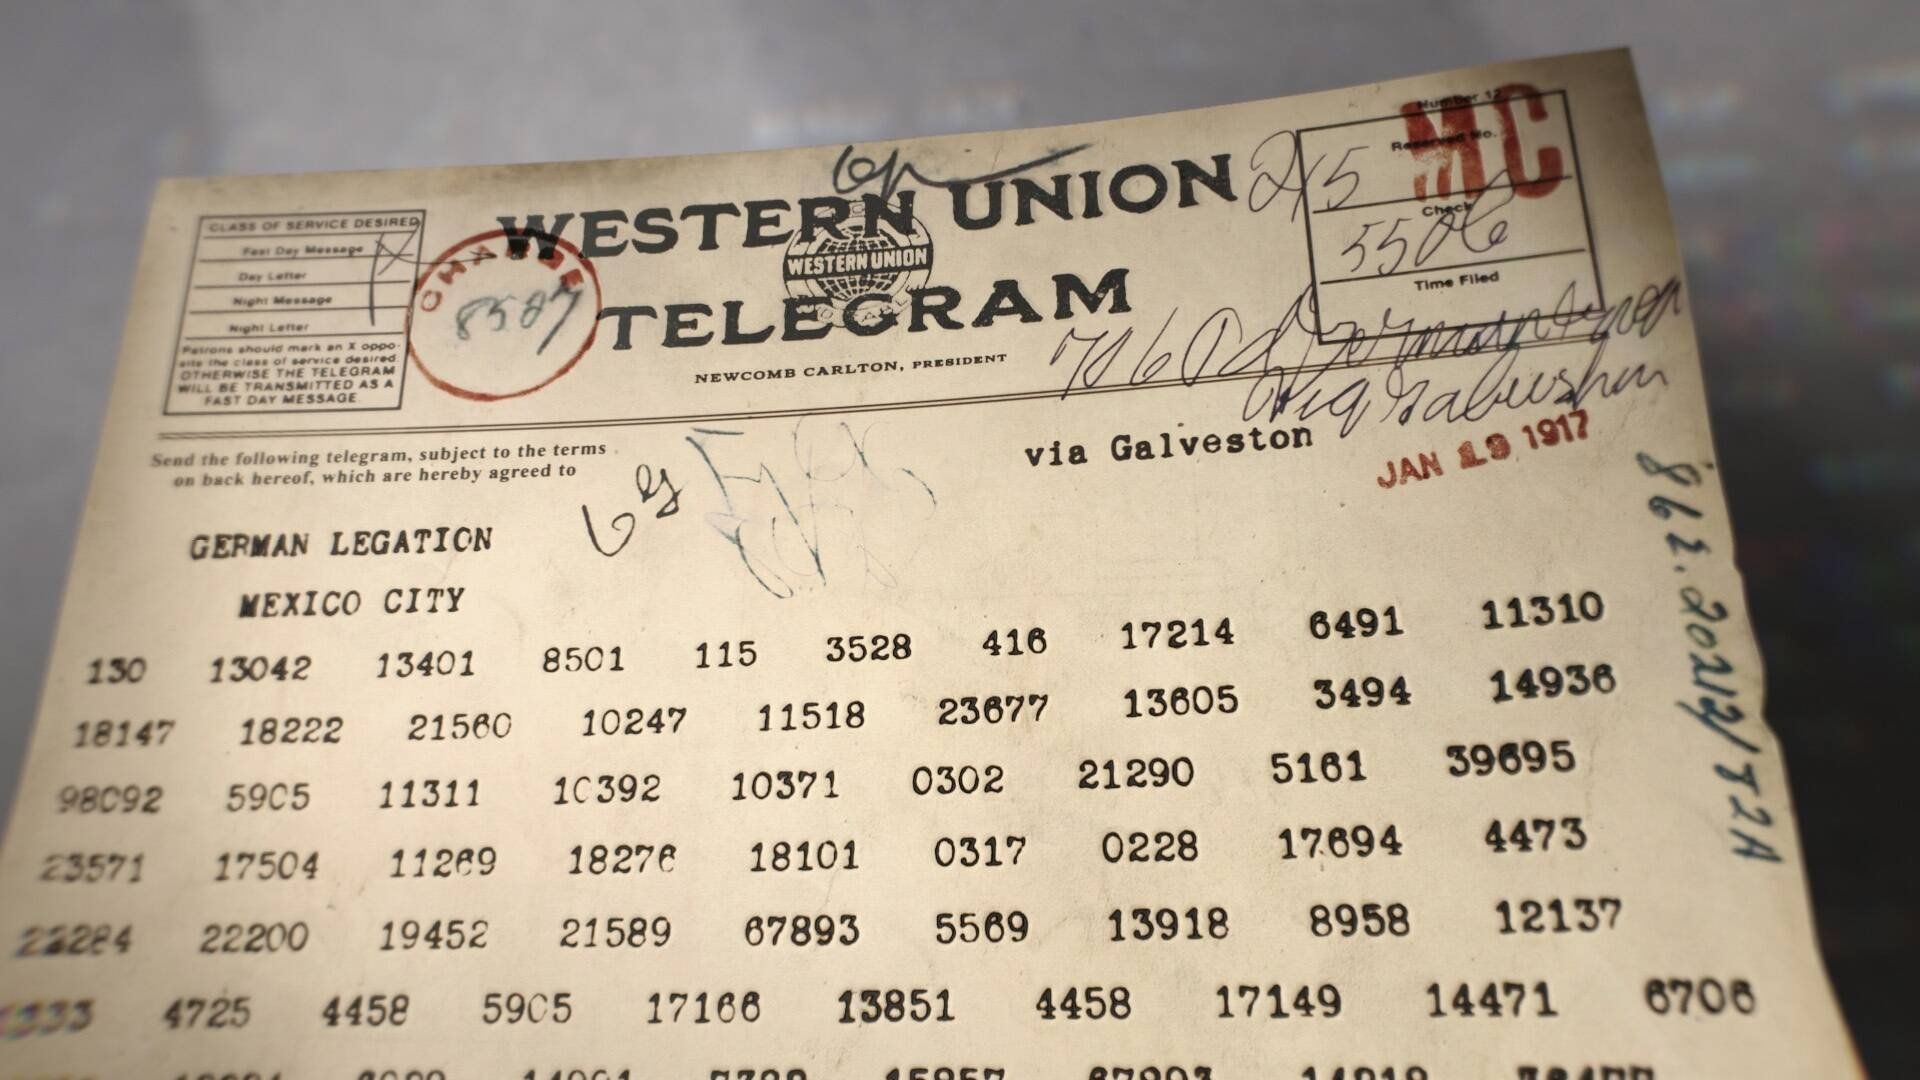 CLASS OF SERVICE DESIRED
Fast Day Message
Day Letter
Night Message
Night Letter
Patrons should mark an X oppo-
site the class of service desired
OTHERWISE THE TELEGRAM
WILL BE TRANSMITTED AS A
FAST DAY MESSAGE.
CHARGE
8507
WESTERN UNION
WESTERN UNION
TELEGRAM
NEWCOMB CARLTON, PRESIDENT
MC
Number 12
Reserved No.
215
Check
5506
Time Filed
Send the following telegram, subject to the terms
on back hereof, which are hereby agreed to
via Galveston
JAN 19 1917
GERMAN LEGATION
MEXICO CITY
130 13042 13401 8501 115 3528 416 17214 6491 11310
18147 18222 21560 10247 11518 23677 13605 3494 14936
98092 5905 11311 10392 10371 0302 21290 5161 39695
23571 17504 11269 18276 18101 0317 0228 17694 4473
22284 22200 19452 21589 67893 5569 13918 8958 12137
1333 4725 4458 5905 17166 13851 4458 17149 14471 6706
862.20212/82A